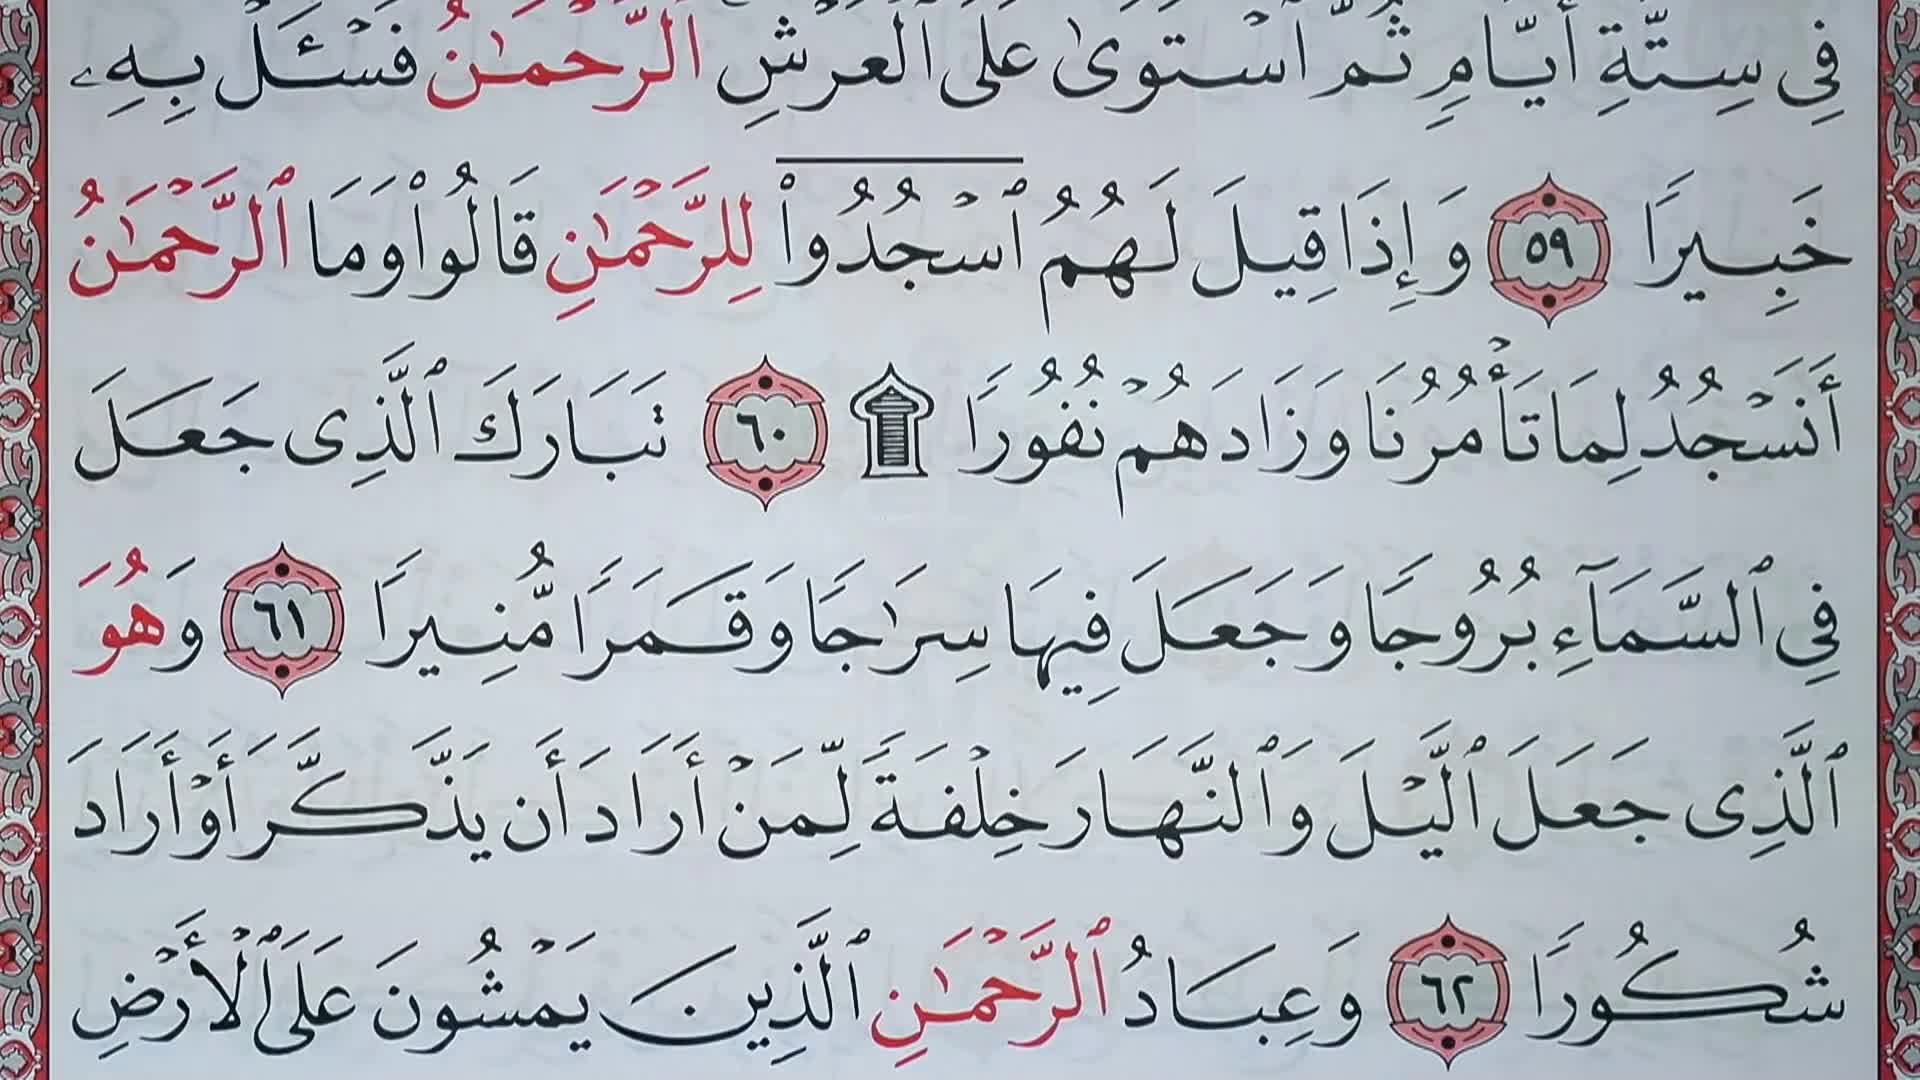 فِي سِتَّةِ أَيَّامٍ ثُمَّ ٱسْتَوَىٰ عَلَى ٱلْعَرْشِ ٱلرَّحْمَـٰنُ فَسْـَٔلْ بِهِۦ
خَبِيرًا ٥٩ وَإِذَا قِيلَ لَهُمُ ٱسْجُدُوا۟ لِلرَّحْمَـٰنِ قَالُوا۟ وَمَا ٱلرَّحْمَـٰنُ
أَنَسْجُدُ لِمَا تَأْمُرُنَا وَزَادَهُمْ نُفُورًا ۩ ٦٠ تَبَارَكَ ٱلَّذِى جَعَلَ
فِي ٱلسَّمَآءِ بُرُوجًا وَجَعَلَ فِيهَا سِرَٰجًا وَقَمَرًا مُّنِيرًا ٦١ وَهُوَ
ٱلَّذِى جَعَلَ ٱلَّيْلَ وَٱلنَّهَارَ خِلْفَةً لِّمَنْ أَرَادَ أَن يَذَّكَّرَ أَوْ أَرَادَ
شُكُورًا ٦٢ وَعِبَادُ ٱلرَّحْمَـٰنِ ٱلَّذِينَ يَمْشُونَ عَلَى ٱلْأَرْضِ